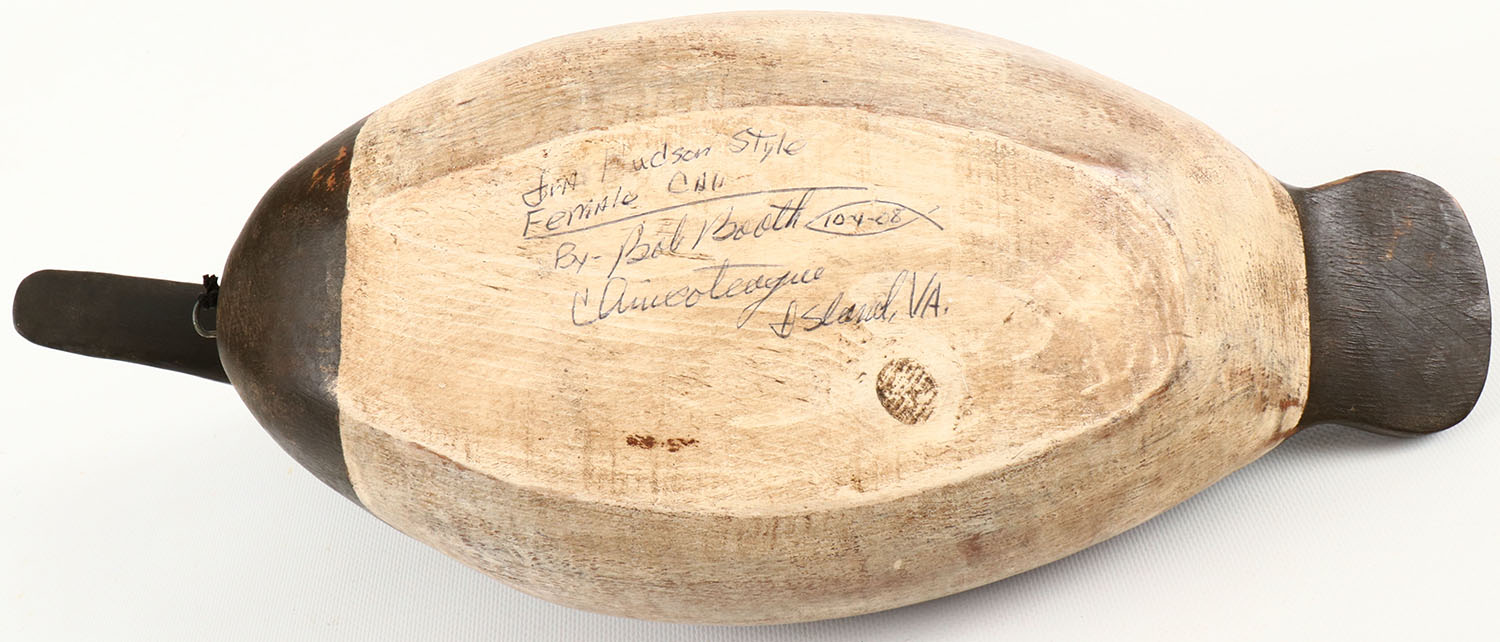 Jim Hudson Style
Female Can
By- Bob Booth 10-4-08
Chincoteague
Island, VA.